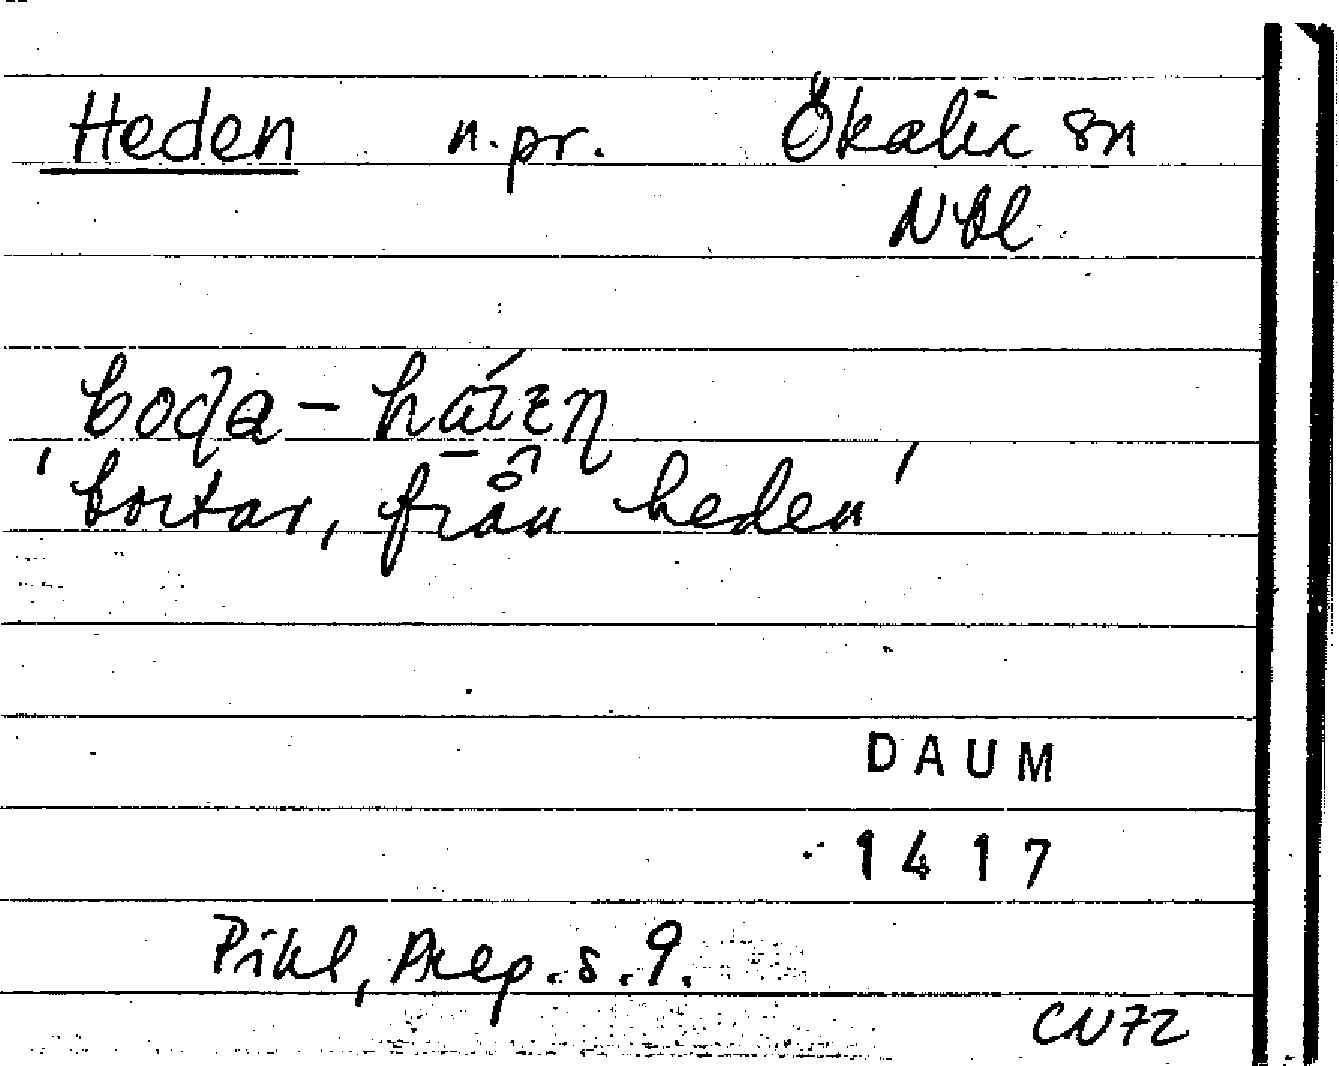 Heden n.pr. Ökalix sn
Nbl.
boda-háizn
'bortar, från heden'
DAUM
1417
Pihl, Prep. s. 9.
CN72